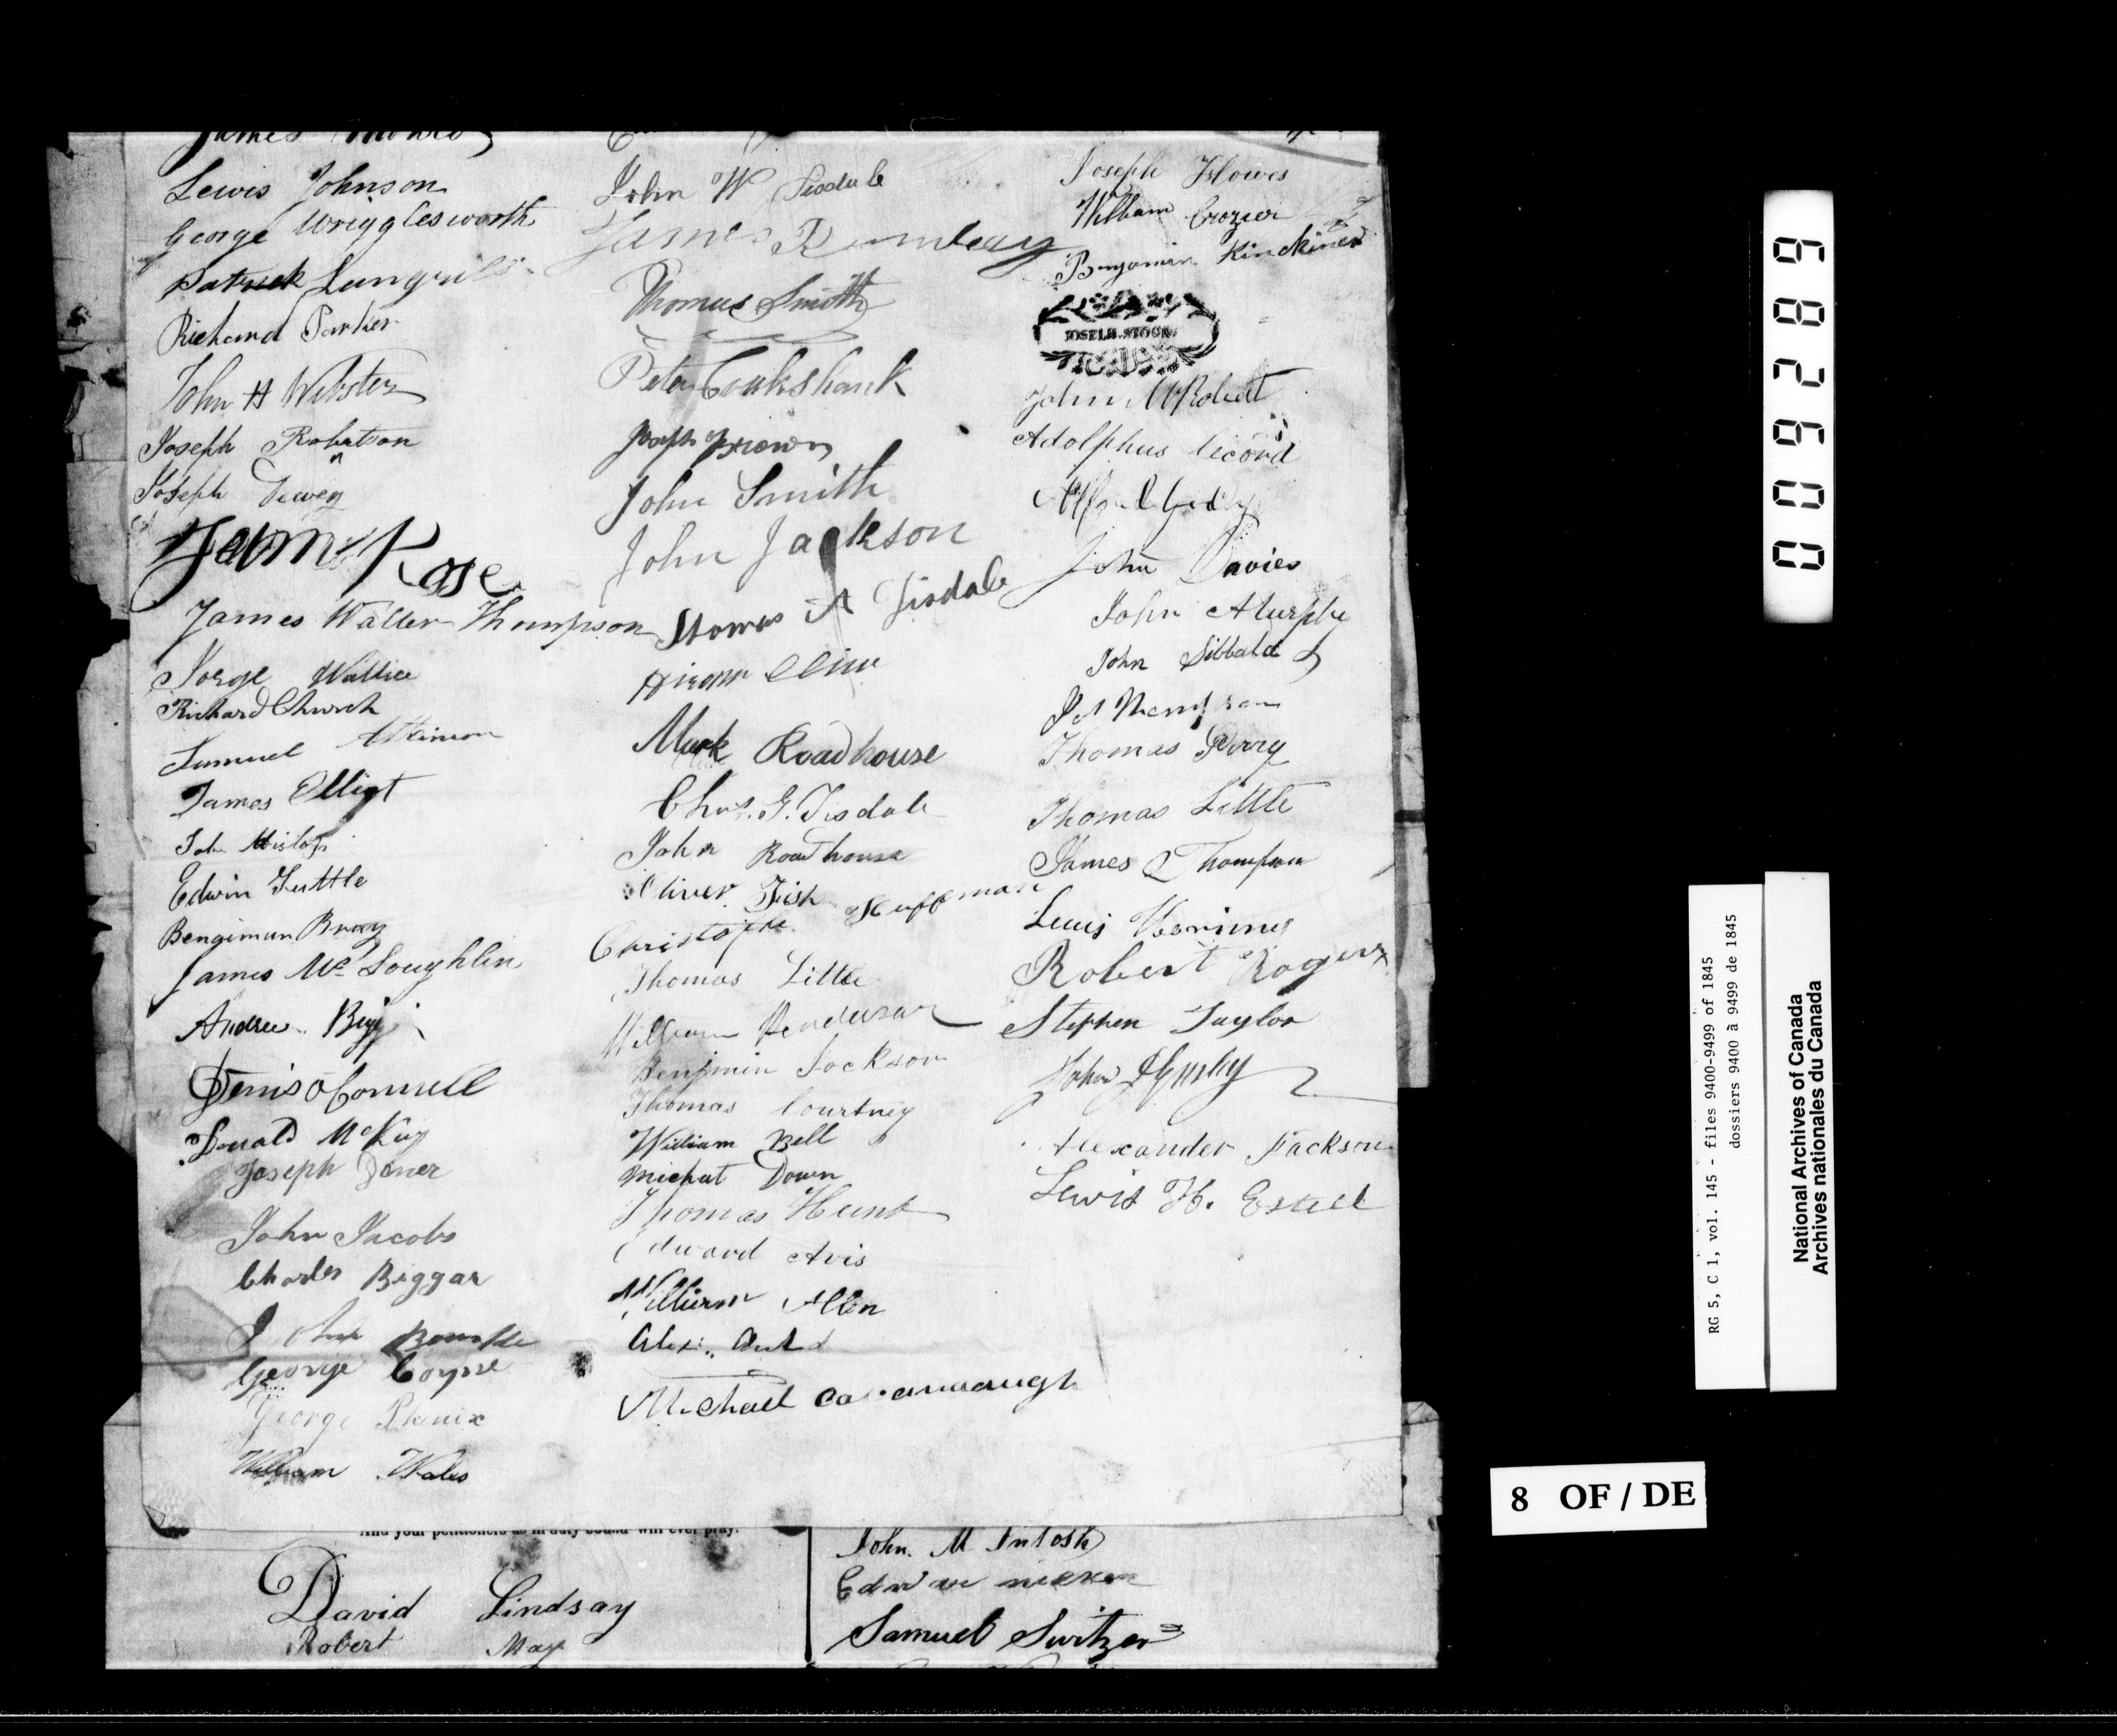 James
Lewis Johnson
George Wrigglesworth
Patrick
Richard Parker
John H Webster
Joseph Robertson
Joseph
James Rose
James Walter Thompson
Gorge Wallice
Richard Church
Samuel Atkinson
James Elliot
John Hislop
Edwin Tuttle
Bengimun
James Mc Loughlin
Andrew
Denis O Connell
Donald McKay
Joseph
John Jacobs
Charles Biggar
John
George Coyne
George Phenix
William Wales
John W Tisdale
James
Thomas Smith
Peter
Joseph Brown
John Smith
John Jackson
Thomas A Tisdale
Hiram Cline
Mark Roadhouse
Chas. G. Tisdale
John Roadhouse
Oliver Fish
Christophe Huffman
Thomas Little
William Henderson
Benjimin Jackson
Thomas Courtney
William Bell
Down
Thomas Hunt
Edward Avis
William Allen
Alex.
Michael Cavanaaugh
Joseph Flowes
William Crozier
Benjamin
JOSEPH STOCK
John McRobert
AdolphusEcord
John Davies
John Murphy
John Sibbald
Thompson
Thomas Perry
Thomas Little
James Thompson
Lewis
Robert Rogers
Stephen Taylor
John
Alexander Jackson
Lewis H. Estell
And your petitioners as in duty bound will ever pray.
David Lindsay
Robert May
John. M Intosh
Samuel Switzer
0092689
RG 5, C 1, vol. 145 - files 9400-9499 of 1845
dossiers 9400 à 9499 de 1845
National Archives of Canada
Archives nationales du Canada
8 OF / DE